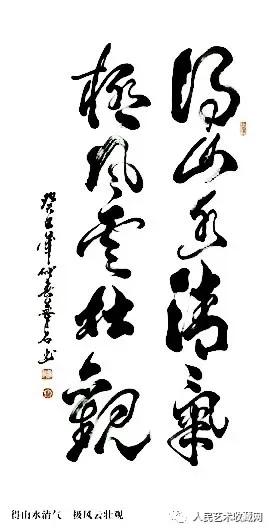 得山水清氣
極風雲壮觀
癸巳年
得山水清气 极风云壮观
人民艺术收藏网